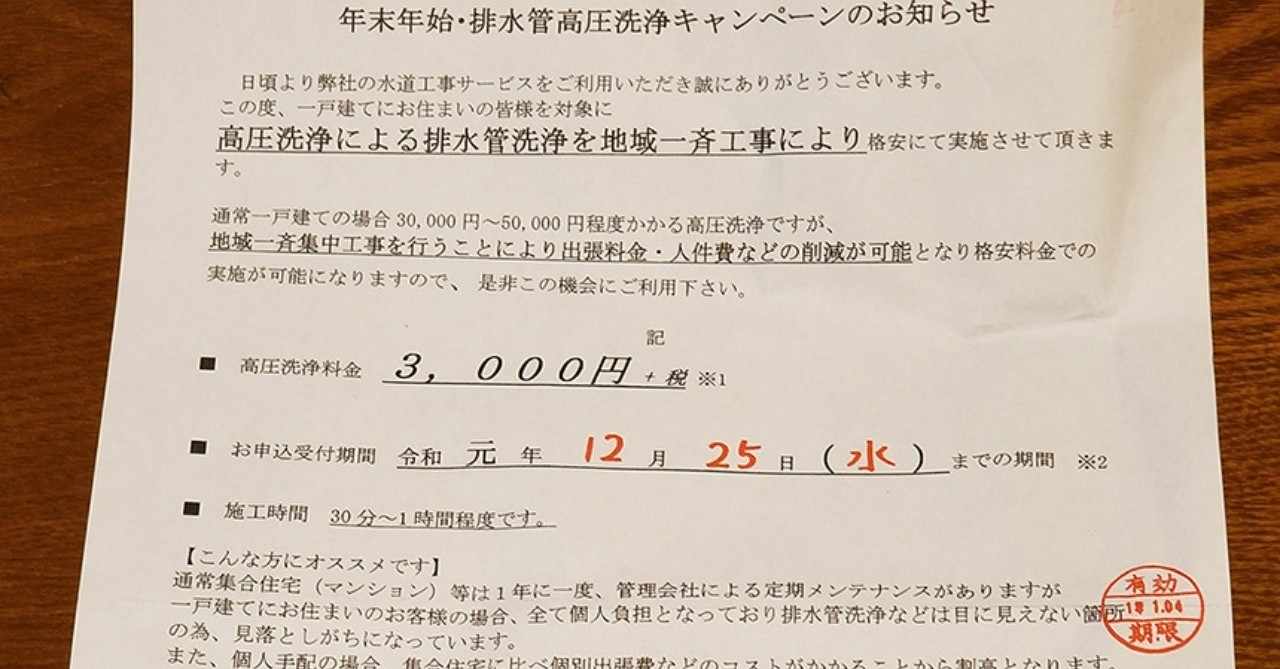 年末年始・排水管高圧洗浄キャンペーンのお知らせ
日頃より弊社の水道工事サービスをご利用いただき誠にありがとうございます。
この度、一戸建てにお住まいの皆様を対象に
高圧洗浄による排水管洗浄を地域一斉工事により格安にて実施させて頂きま
す。
通常一戸建ての場合 30,000 円～50,000 円程度かかる高圧洗浄ですが、
地域一斉集中工事を行うことにより出張料金・人件費などの削減が可能となり格安料金での
実施が可能になりますので、是非この機会にご利用下さい。
記
■ 高圧洗浄料金 3，０００円 + 税 ※1
■ お申込受付期間 令和 元 年 12 月 25 日 (水) までの期間 ※2
■ 施工時間 30 分～1 時間程度です。
【こんな方にオススメです】
通常集合住宅（マンション）等は１年に一度、管理会社による定期メンテナンスがありますが
一戸建てにお住まいのお客様の場合、全て個人負担となっており排水管洗浄などは目に見えない箇所
の為、見落としがちになっています。
また、個人手配の場合、集合住宅に比べ個別出張費などのコストがかかることから割高となります。
有効
1.04
期限